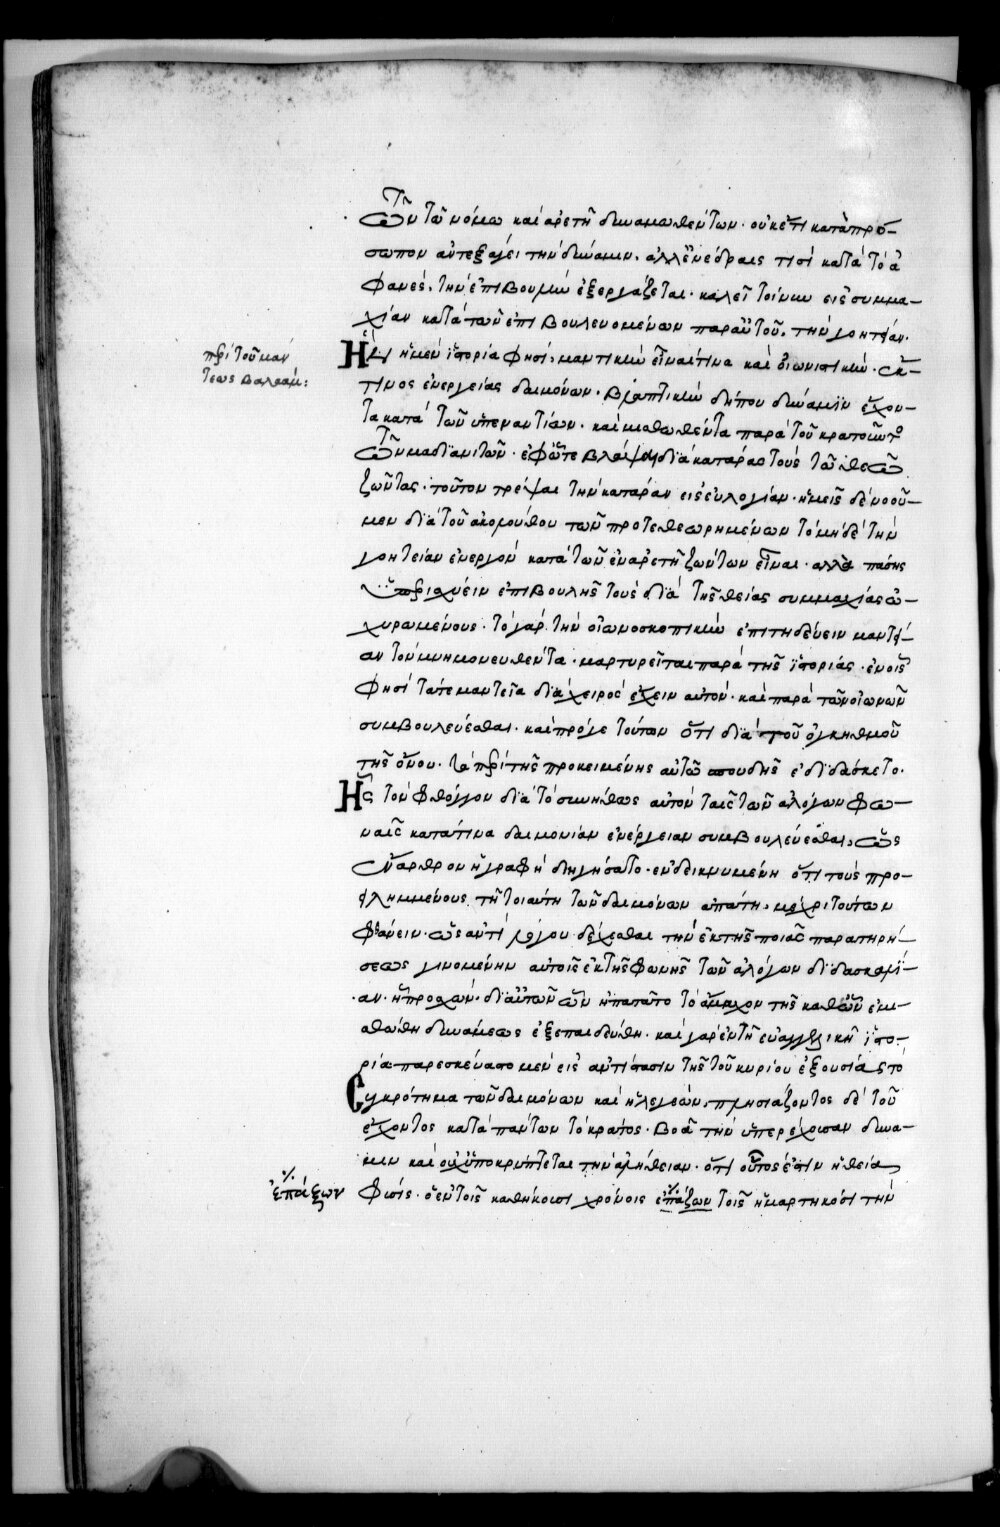 τῶν τῶ νόμω καὶ ἀρετῆ δυναμωθέντων· οὐκέτι κατὰ πρό-
σωπον ἀντεξάγει τὴν δύναμιν, ἀλλ' ἐνέδραις τισὶ κατὰ τὸ ἀ
φανὲς, τὴν ἐπιβουλὴν ἐξεργάζεται· καλεῖ τοίνυν εἰς συμμα-
χίαν κατὰ τῶν ἐπιβουλευομένων παρ' αὐτοῦ, τὴν γοητείαν.
περὶ τοῦ μάν
τεως βαλαάμ:
Ἣν ἡ μὲν ἱστορία φησὶ, μαντικὴν εἶναί τινα καὶ οἰωνιστικήν· ἔκ-
τινος ἐνεργείας δαιμόνων· βλαπτικὴν δήπου δύναμιν ἔχον-
τα κατὰ τῶν ὑπεναντίων· καὶ μισθωθέντα παρὰ τοῦ κρατοῦντος
τῶν μαδιανιτῶν· ἐφ' ὧτε βλάψαι διὰ κατάρας τοὺς τῶ θεῶ
ζῶντας· τοῦτον τρέψαι τὴν κατάραν εἰς εὐλογίαν· ἡμεῖς δὲ νοοῦ-
μεν διὰ τοῦ ἀκολούθου τῶν προτεθεωρημένων τὸ μηδὲ τὴν
γοητείαν ἐνεργὸν κατὰ τῶν ἐν ἀρετῆ ζώντων εἶναι· ἀλλὰ πάσης
ὑπεριχύειν ἐπιβουλῆς τοὺς διὰ τῆς θείας συμμαχίας ὠ-
χυρωμένους· τὸ γὰρ τὴν οἰωνοσκοπικὴν ἐπιτηδεύειν μαντεί-
αν τὸν μνημονευθέντα· μαρτυρεῖται παρὰ τῆς ἱστορίας· ἐν οἷς
φησὶ τά τε μαντεῖα διὰ χειρὸς ἔχειν αὐτόν· καὶ παρὰ τῶν οἰωνῶν
συμβουλεύεσθαι· καὶ πρό γε τούτων ὅτι διὰ τοῦ ὀγκηθμοῦ
τῆς ὄνου· τὰ περὶ τῆς προκειμένης αὐτῶ σπουδῆς ἐδιδάσκετο.
Ἧς τὸν φθόγγον διὰ τὸ συνήθως αὐτὸν ταῖς τῶν ἀλόγων φω-
ναῖς κατά τινα δαιμονίαν ἐνέργειαν συμβουλεύεσθαι, ὡς
ἔναρθρον ἡ γραφὴ διηγήσατο· ἐνδεικνυμένη ὅτι τοὺς προ-
ειλημμένους τῆ τοιαύτη τῶν δαιμόνων ἀπάτη, μέχρι τούτων
φθάνειν· ὡς ἀντὶ λόγου δέχεσθαι τὴν ἐκ τῆς ποιᾶς παρατηρή-
σεως γινομένην αὐτοῖς ἐκ τῆς φωνῆς τῶν ἀλόγων διδασκαλί-
αν· ἧ προσχών· δι' αὐτῶν ὧν ἠπατᾶτο τὸ ἄμαχον τῆς καθ' ὧν ἐμι-
σθώθη δυνάμεως ἐξεπαιδεύθη· καὶ γὰρ ἐν τῆ εὐαγγελικῆ ἱστο-
ρία παρεσκεύαστο μὲν εἰς ἀντίστασιν τῆς τοῦ κυρίου ἐξουσίας τὸ
Συγκρότημα τῶν δαιμόνων καὶ ἡ λεγεών, πλησιάζοντος δὲ τοῦ
ἔχοντος κατὰ πάντων τὸ κράτος· βοᾶ τὴν ὑπερέχουσαν δύνα-
μιν καὶ οὐχ ὑποκρύπτεται τὴν ἀλήθειαν· ὅτι οὗτος ἐστιν ἡ θεία
ἐπάξων φύσις· ὁ ἐν τοῖς καθήκουσι χρόνοις ἐπάζων τοῖς ἡμαρτηκόσι τὴν